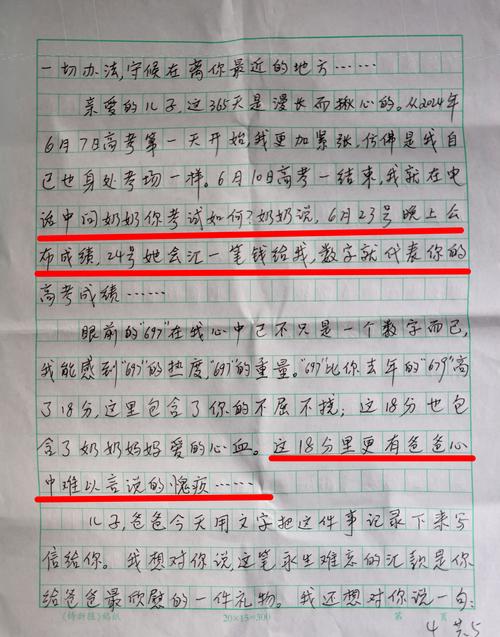 一切办法,守候在离你最近的地方……
亲爱的儿子,这365天是漫长而揪心的。从2024年
6月7日高考第一天开始,我更加紧张,仿佛是我自
己也身处考场一样。6月10日高考一结束,我就在电
话中问奶奶你考试如何?奶奶说,6月23号晚上公
布成绩,24号她会汇一笔钱给我,数字就代表你的
高考成绩……
眼前的"697"在我心中已不只是一个数字而已,
我能感到"697"的热度,"697"的重量。"697"比你去年的"679"高
了18分,这里包含了你的不屈不挠;这18分也包
含了奶奶妈妈爱的心血。这18分里更有爸爸心
中难以言说的愧疚……
儿子,爸爸今天用文字把这件事记录下来写
信给你。我想对你说,这笔永生难忘的汇款是你
给爸爸最欣慰的一件礼物。我还想对你说一句:
20×15=300
第 页